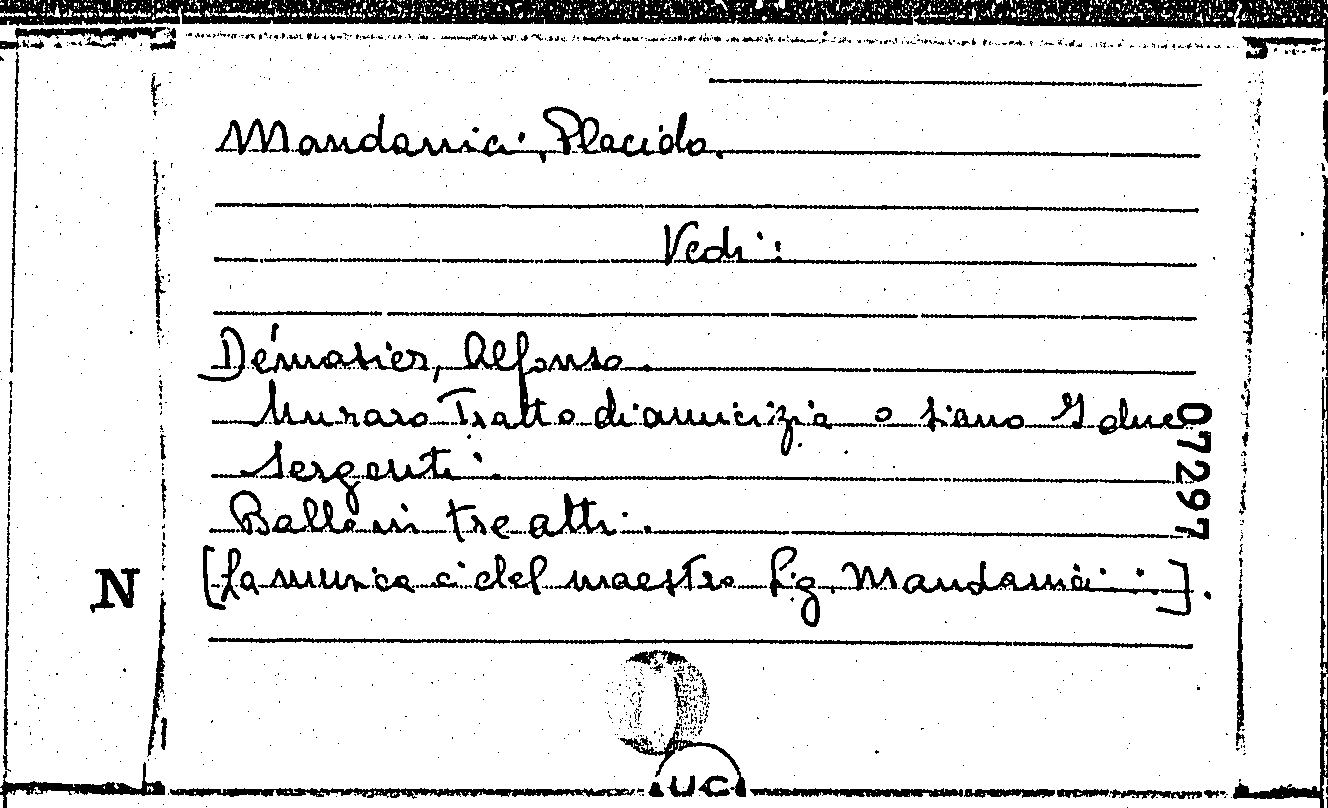 Mandanici, Placido.
Vedi:
Démasier, Alfonso.
Tratto di amicizia o siano I due
Sergenti.
Ballo in tre atti.
[La musica è del maestro Sig. Mandanici..].
07297
N
UC